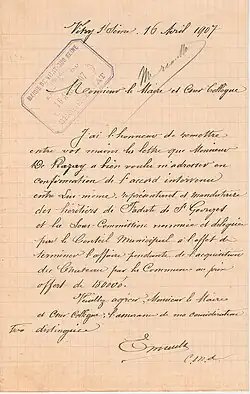 Vitry s/Seine, 16 Avril 1907
MAIRIE DE VITRY-SUR-SEINE
Monsieur le Maire et Cher Collègue
J'ai l'honneur de remettre
entre vos mains la lettre que Monsieur
a bien voulu m'adresser en
confirmation de l'accord intervenu
entre Lui même, représentant et mandataire
des héritiers de St Georges
et la Sous-Commission nommée et déléguée
par le Conseil Municipal à l'effet de
terminer l'affaire pendante de l'acquisition
du Château par la Commune au prix
offert de 40000.
Veuillez agréer, Monsieur le Maire
et Cher Collègue, l'assurance de ma considération
très distinguée